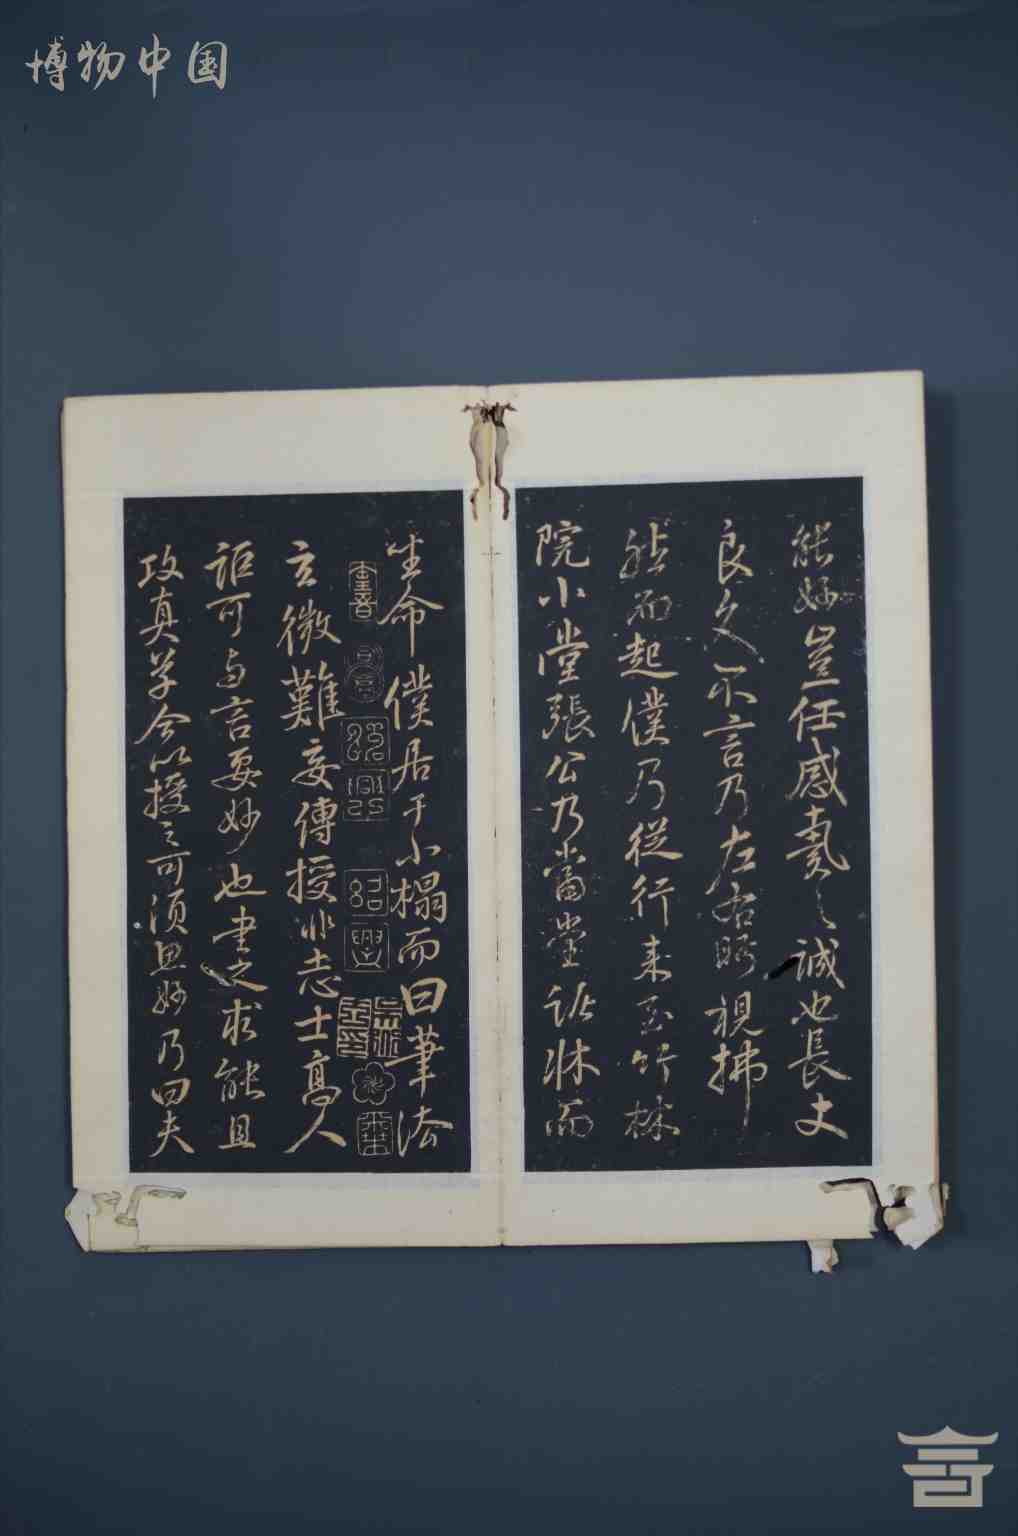 博物中国
能妙豈任感之誠也長史
良久不言乃左右眄視拂
然而起僕乃從行來至竹林
院小堂張公乃當堂踞牀而
坐命僕居于小榻而曰筆法
紹興
玄微難妄傳授非志士高人
詎可与言要妙也書之求能且
攻真草今以授之可須思妙乃曰夫